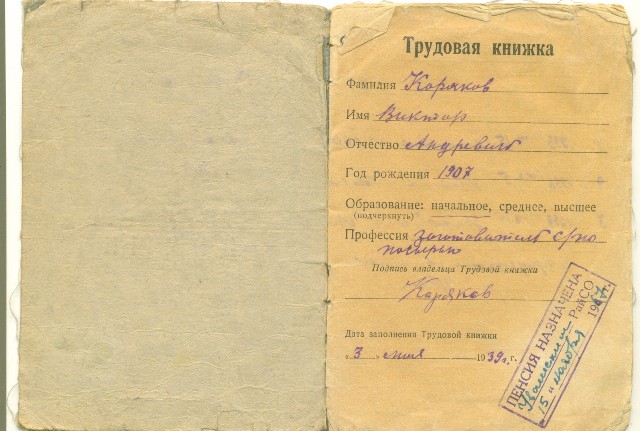 Трудовая книжка
Фамилия Коряков
Имя Виктор
Отчество Андревич
Год рождения 1907
Образование: начальное, среднее, высшее
(подчеркнуть)
Профессия заготовитель с/по
Подпись владельца Трудовой книжки
Коряков
Дата заполнения Трудовой книжки
„3" мая 1939 г.
ПЕНСИЯ НАЗНАЧЕНА
РайСО
15 " ноября 1967 г.